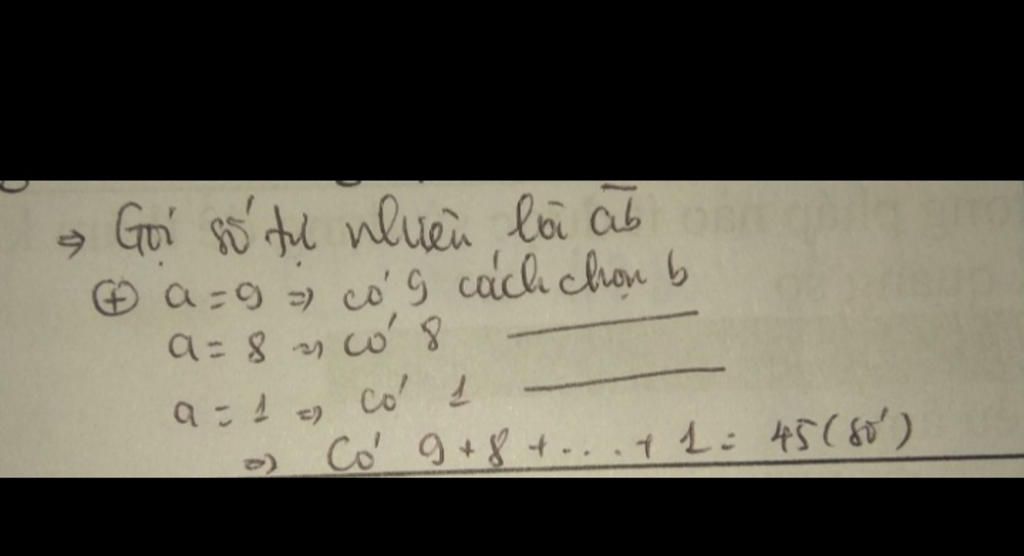 ⇒ Gọi số tự nhiên là ab̅
⊕ a = 9 ⇒ có 9 cách chọn b
a = 8 ⇒ có 8
a = 1 ⇒ có 1
⇒ Có 9 + 8 + ... + 1 = 45 (số)